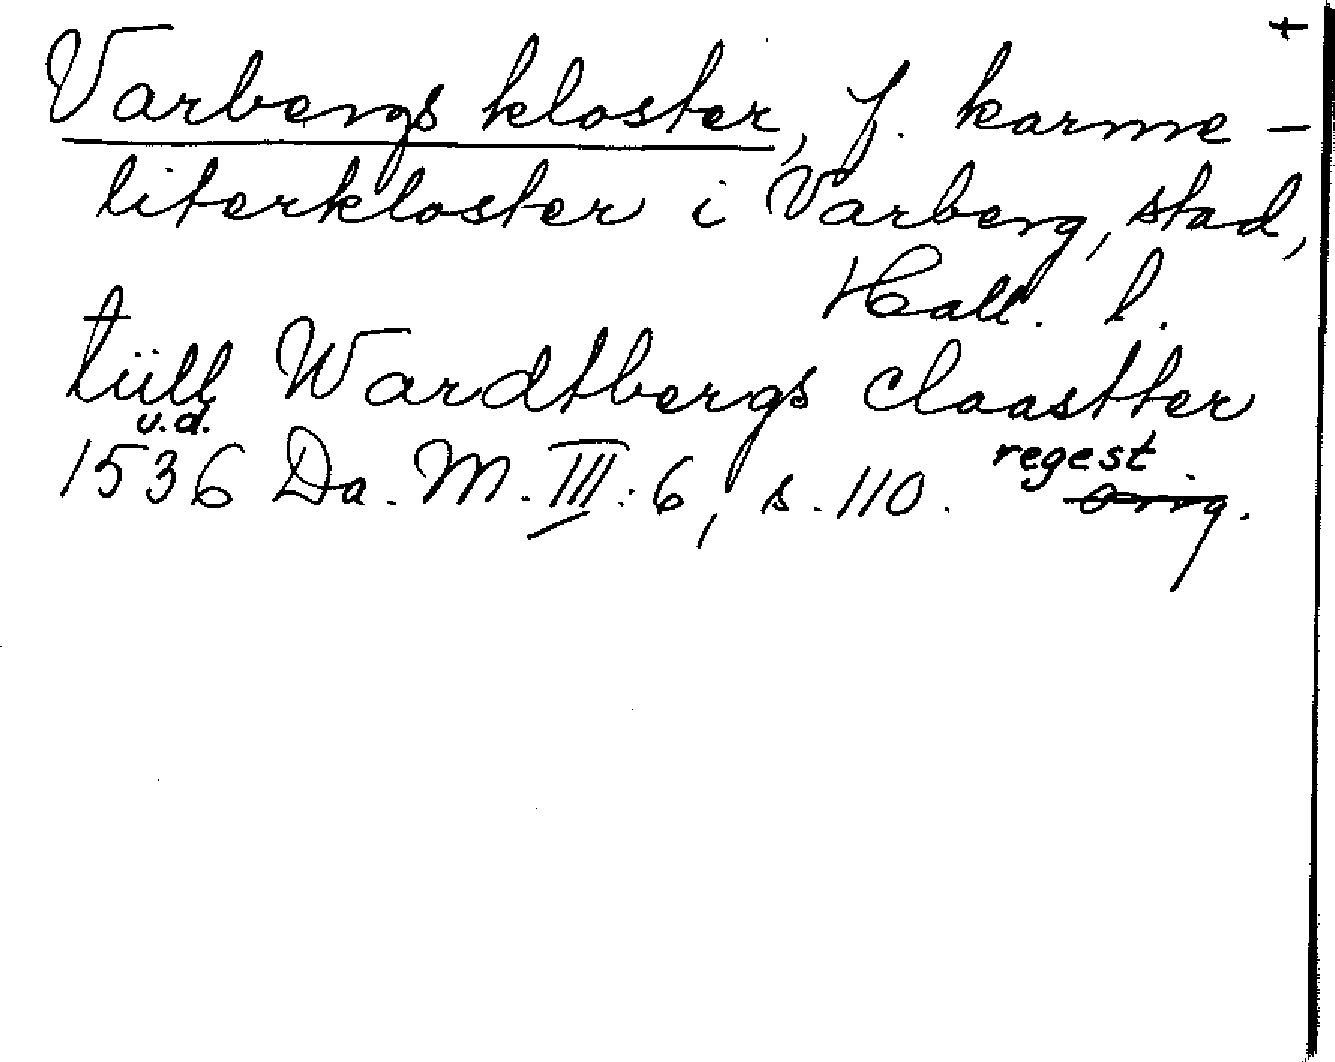 †
Varbergs kloster, f. karme-
literkloster i Varberg, stad,
Hall. l.
tüll Wardtbergs claastter
u.d.
1536 Da. M. III: 6, s. 110. regest
orig.